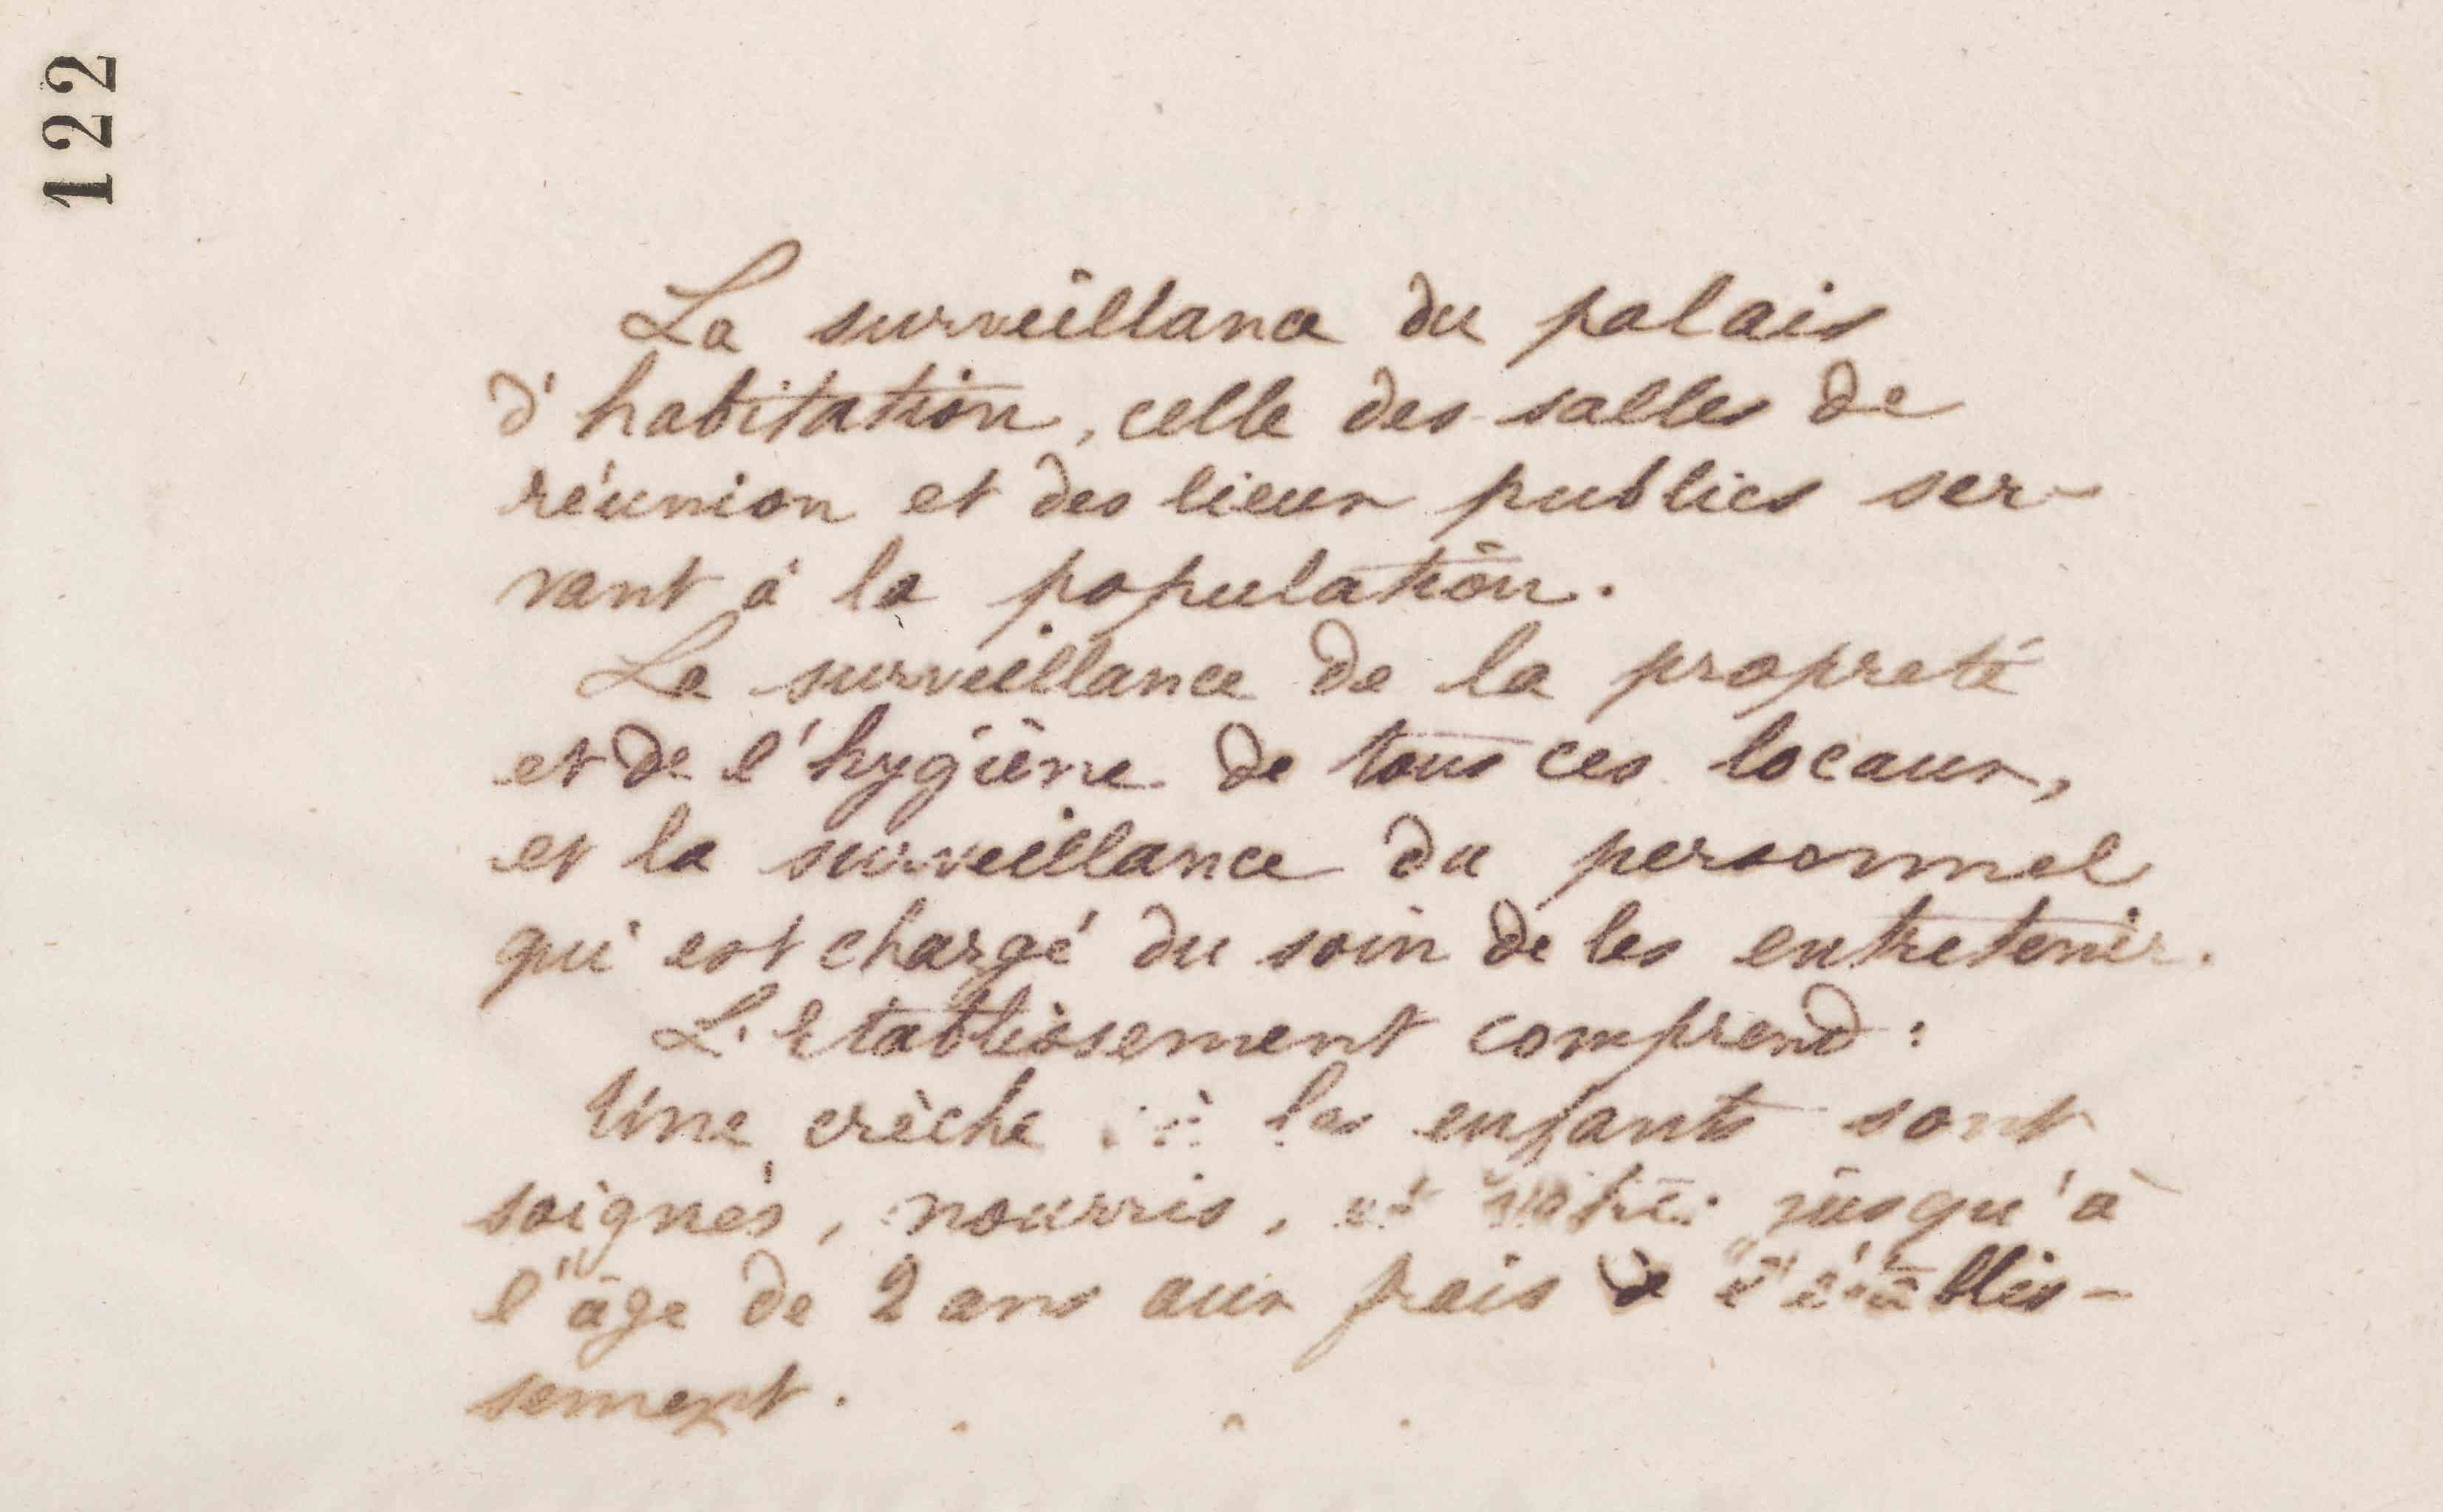 122
La surveillance du palais
d'habitation, celle des salles de
réunion et des lieux publics ser-
vant à la population.
La surveillance de la propreté
et de l'hygiène de tous ces locaux,
et la surveillance du personnel
qui est chargé du soin de les entretenir.
L'Etablissement comprend :
Une crèche où les enfants sont
soignés, nourris, et jusqu'à
l'âge de 2 ans aux frais de l'établis-
sement.